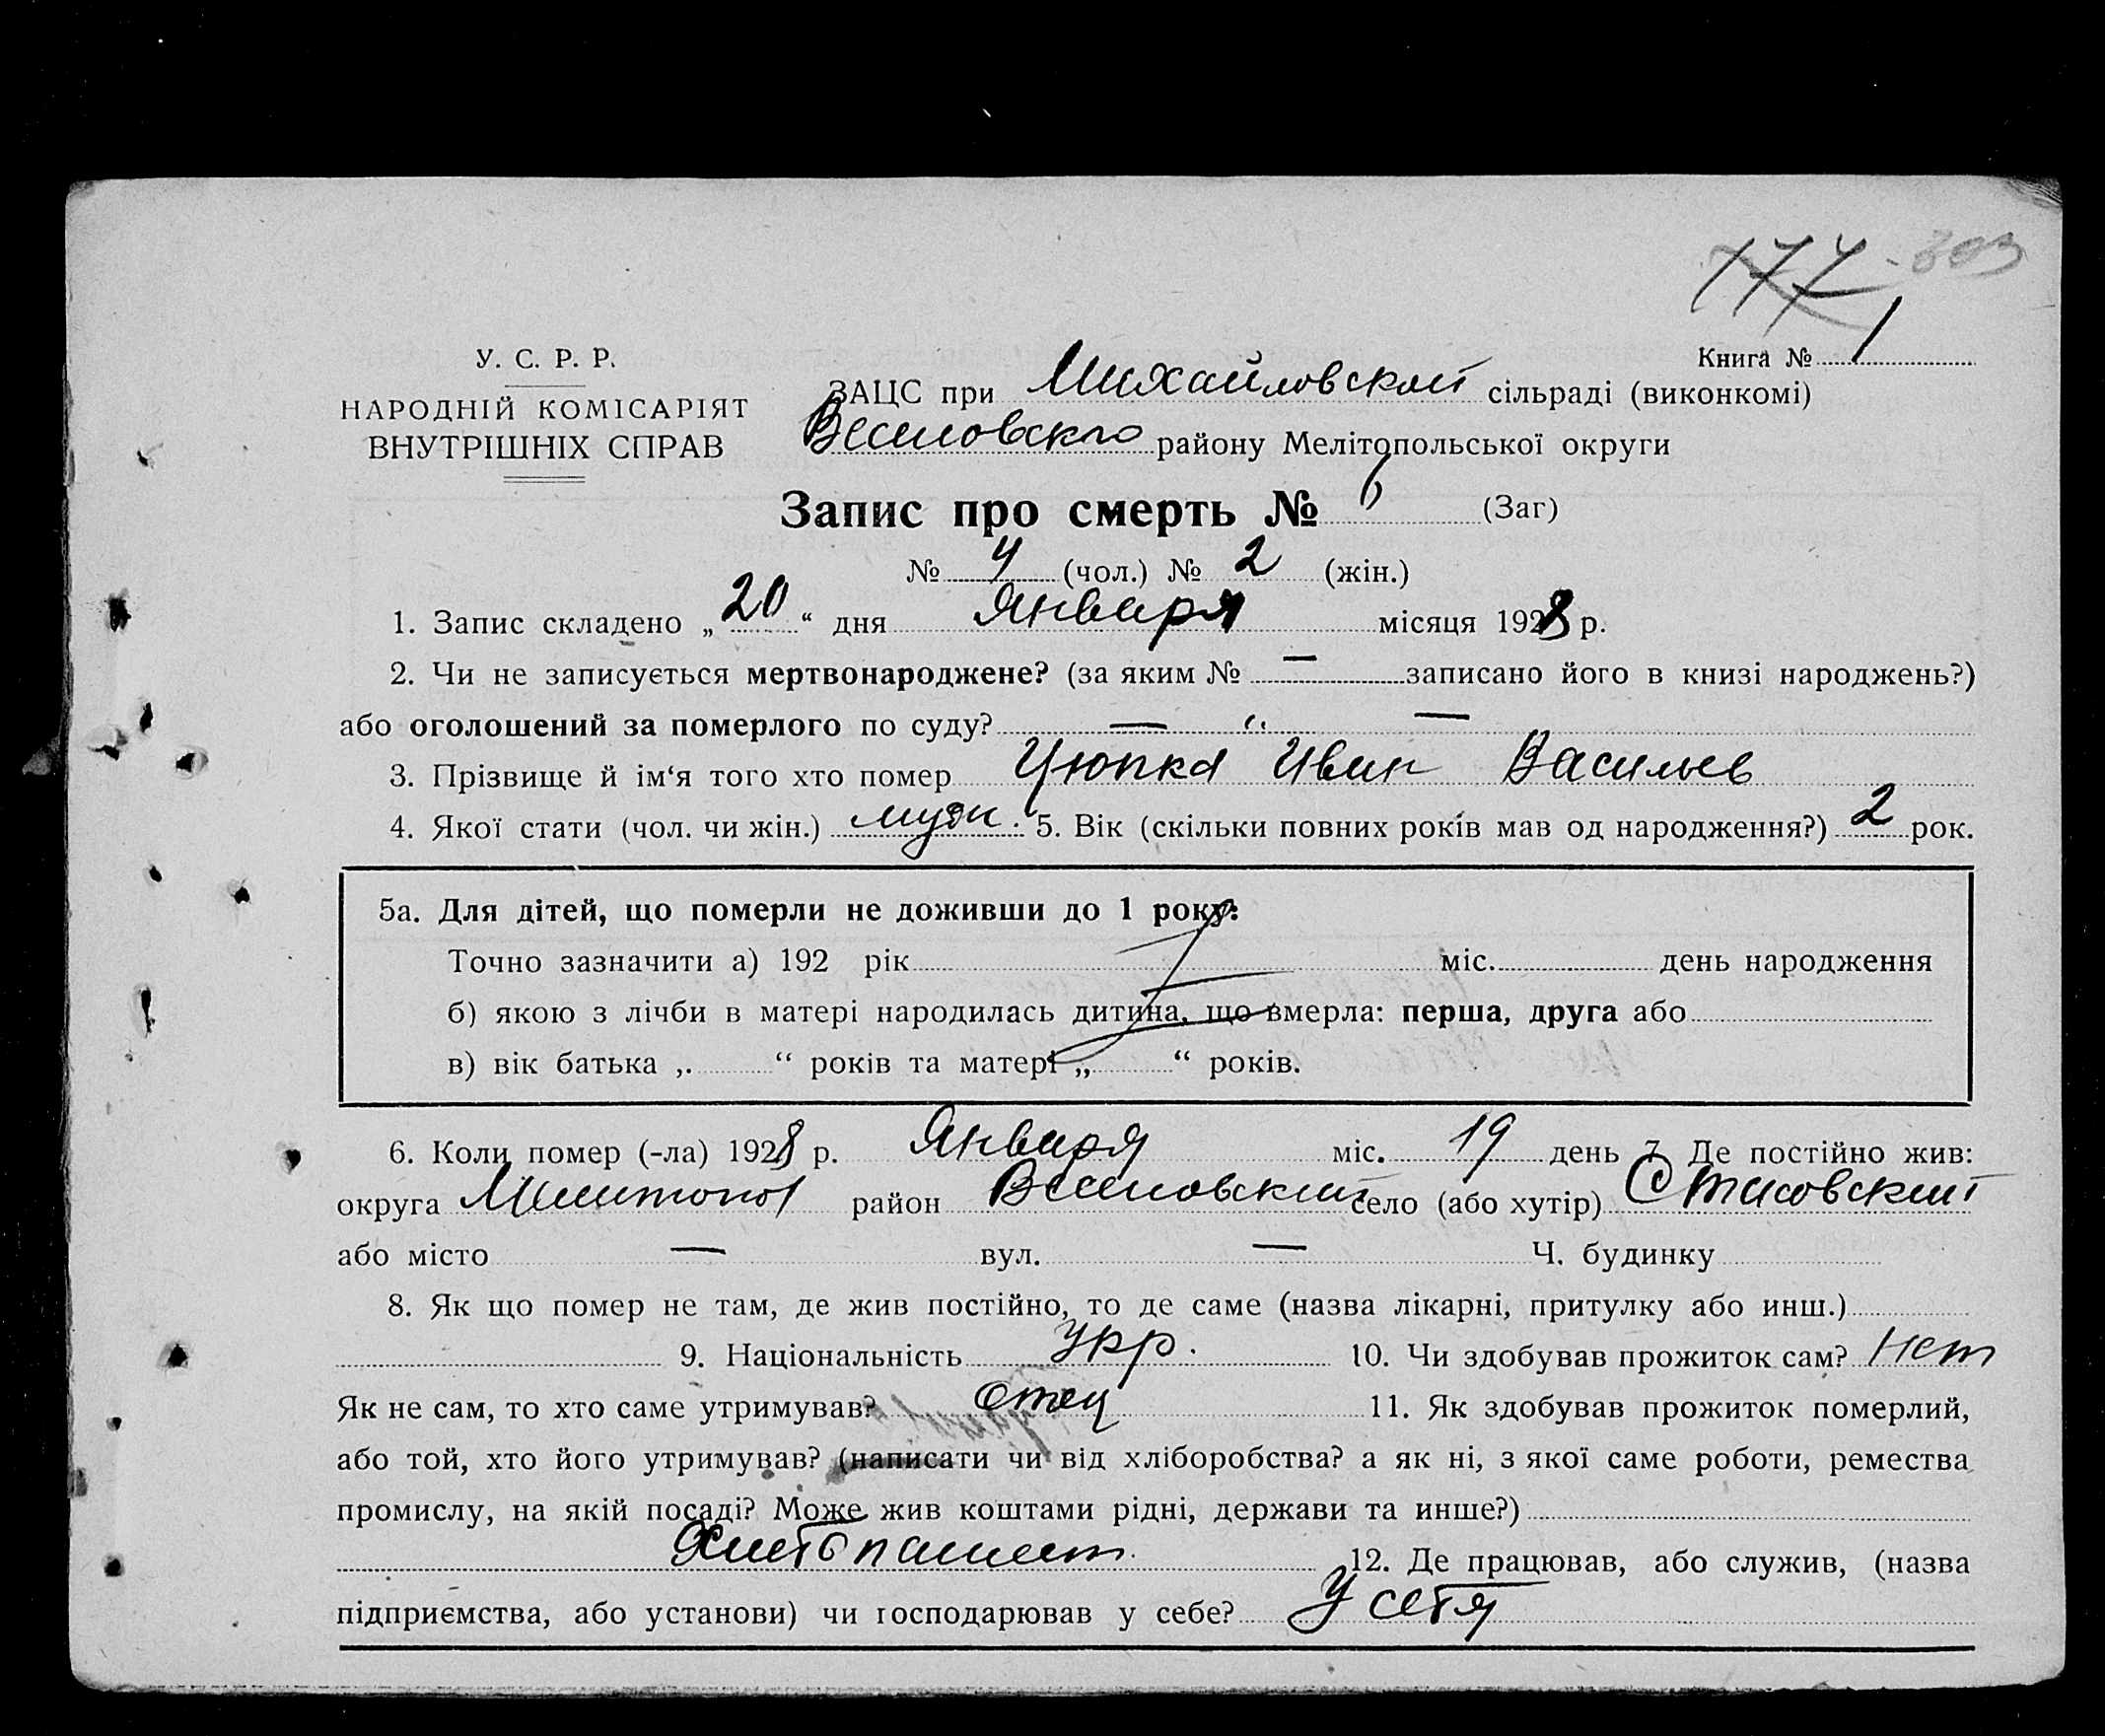 177 - 303
У. С. Р. Р.
Книга № 1
НАРОДНІЙ КОМІСАРІЯТ
ВНУТРІШНІХ СПРАВ
ЗАЦС при Михайловской сільраді (виконкомі)
Веселовского району Мелітопольської округи
Запис про смерть № 6 (Заг)
№ 4 (чол.) № 2 (жін.)
1. Запис складено „ 20 “ дня Января місяця 1928 р.
2. Чи не записується мертвонароджене? (за яким № — записано його в книзі народжень?)
або оголошений за померлого по суду? — “ —
3. Прізвище й ім‘я того хто помер Цюпка Иван Васильев
4. Якої стати (чол. чи жін.) муж. 5. Вік (скільки повних років мав од народження?) 2 рок.
5а. Для дітей, що померли не доживши до 1 року:
Точно зазначити а) 192 рік міс. день народження
б) якою з лічби в матері народилась дитина, що вмерла: перша, друга або
в) вік батька „ “ років та матері „ “ років.
6. Коли помер (-ла) 1928 р. Января міс. 19 день 7. Де постійно жив:
округа Мелитопол район Веселовский село (або хутір)
або місто — вул. — Ч. будинку
8. Як що помер не там, де жив постійно, то де саме (назва лікарні, притулку або инш.)
9. Національність укр. 10. Чи здобував прожиток сам? Нет
Як не сам, то хто саме утримував? отец 11. Як здобував прожиток померлий,
або той, хто його утримував? (написати чи від хліборобства? а як ні, з якої саме роботи, ремества
промислу, на якій посаді? Може жив коштами рідні, держави та инше?)
Хлебопашест. 12. Де працював, або служив, (назва
підприємства, або установи) чи господарював у себе? У себя